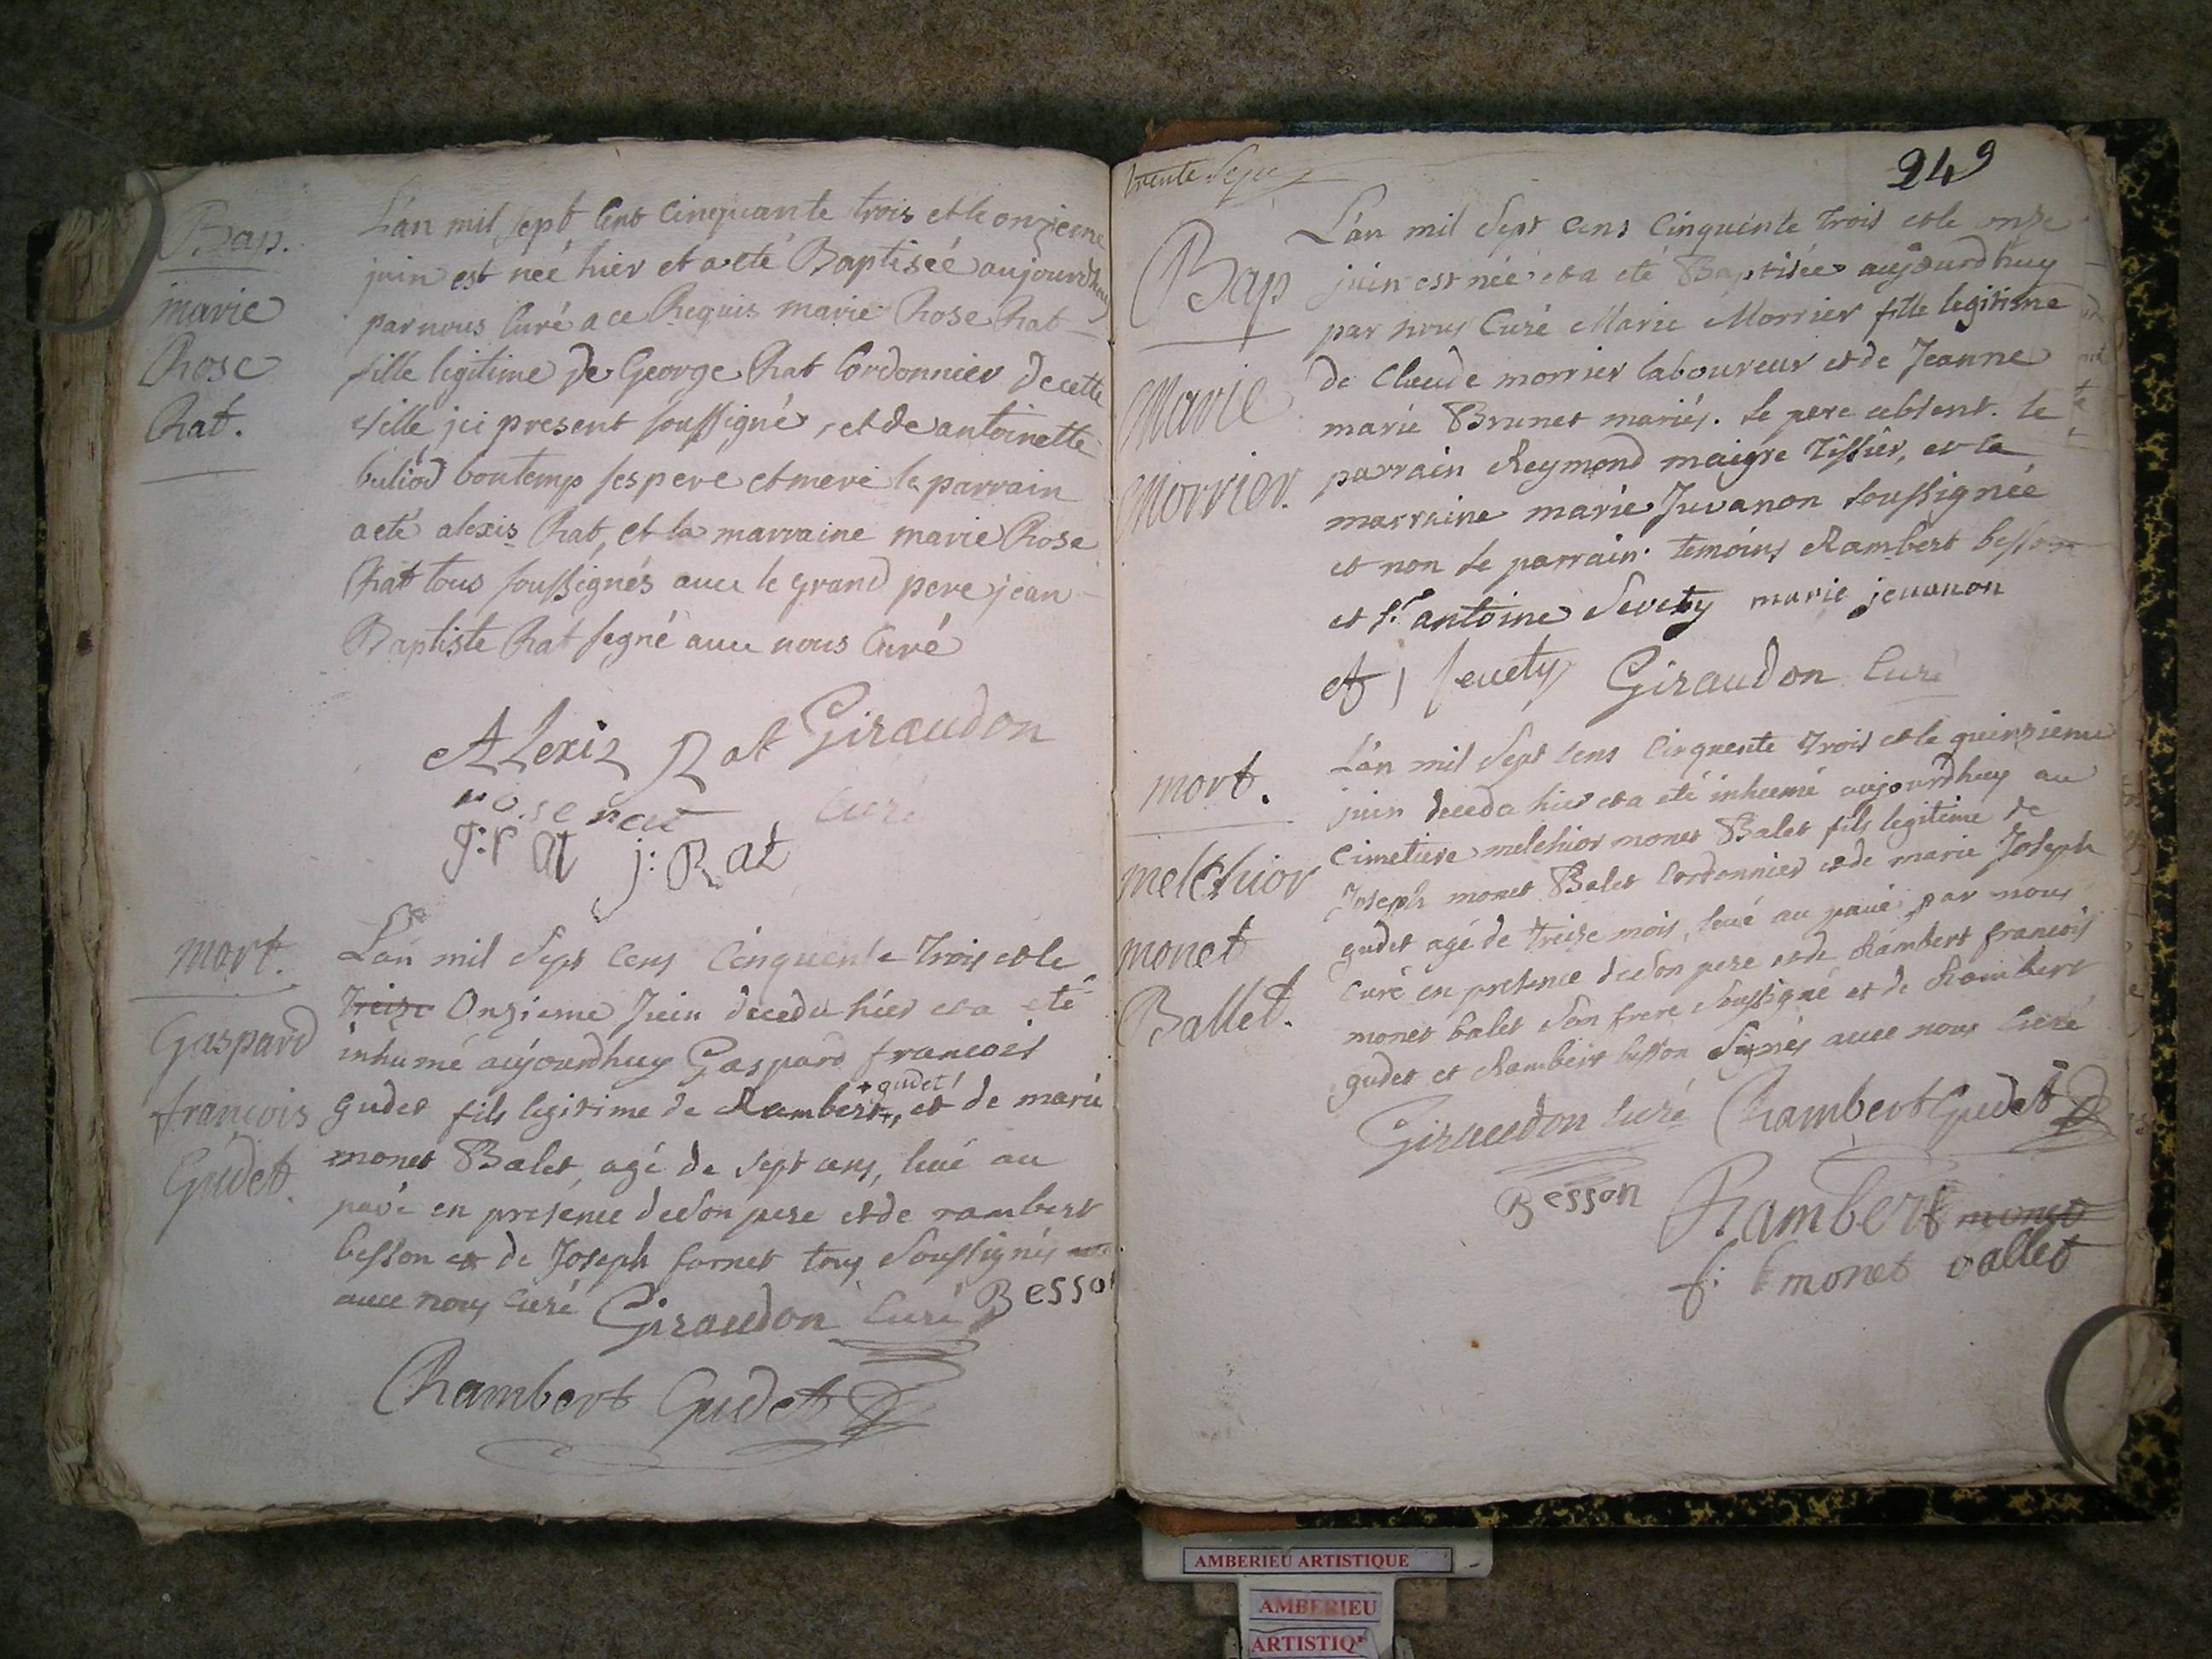 Bap.
marie
Rose
Rat.
L'an mil sept cent cinquante trois et le onzieme
juin est neé hier et a eté Baptiseé aujourdhuy
par nous Curé a ce Requis marie Rose Rat
fille legitime de George Rat Cordonnier de cette
ville jci present soussigné, et de antoinette
buliod boutemp ses pere et mere le parrain
a eté alexis Rat, et la marraine marie Rose
Rat tous soussignés avec le grand pere jean
Baptiste Rat segné avec nous Curé
Alexis Rat Giraudon
rose rat Curé
g: r at j: Rat
mort.
Gaspard
francois
Gudet.
L'an mil Sept Cens Cinquente Trois et le
Treize Onzieme Juin deceda hier et a eté
inhumé aujourdhuy Gaspard francois
+ gudet
gudet fils legitime de Rambert+, et de marie
monet Balet, agé de Sept ans, levé au
pavé en presence de Son pere et de rambert
besson et de Joseph fornet tous Soussignés
avec nous Curé Giraudon Curé Besson
Rambert Gudet
trente Sept
249
Bap
Marie
Morrier.
L'an mil Sept Cens Cinquente Trois et le onze
juin est née et a eté Baptisée aujourdhuy
par nous Curé Marie Morrier fille legitime
de Claude morrier laboureur et de Jeanne
marie Brunet mariés. le pere absent. le
parrain Reymond maigre Tissier, et la
marraine marie Juvanon soussignée
et non le parrain. temoins Rambert besson
et Sr antoine Sevety marie jeuanon
A j Seuety Giraudon Curé
mort.
melchior
monet
Ballet.
L'an mil Sept Cens Cinquente Trois et le quinzieme
juin deceda hier et a eté inhumé aujourdhuy au
Cimetiere melchior monet Balet fils legitime de
Joseph monet Balet Cordonnier et de marie Joseph
gudet agé de treize mois, levé au pavé par nous
Curé en presence de son pere et de Rambert francois
monet balet Son frere Soussigné et de Rambert
gudet et Rambert besson Signés avec nous Curé
Giraudon Curé Rambert Gudet
Besson Rambert monet
f: monet vallet
AMBERIEU ARTISTIQUE
AMBERIEU
ARTISTIQ